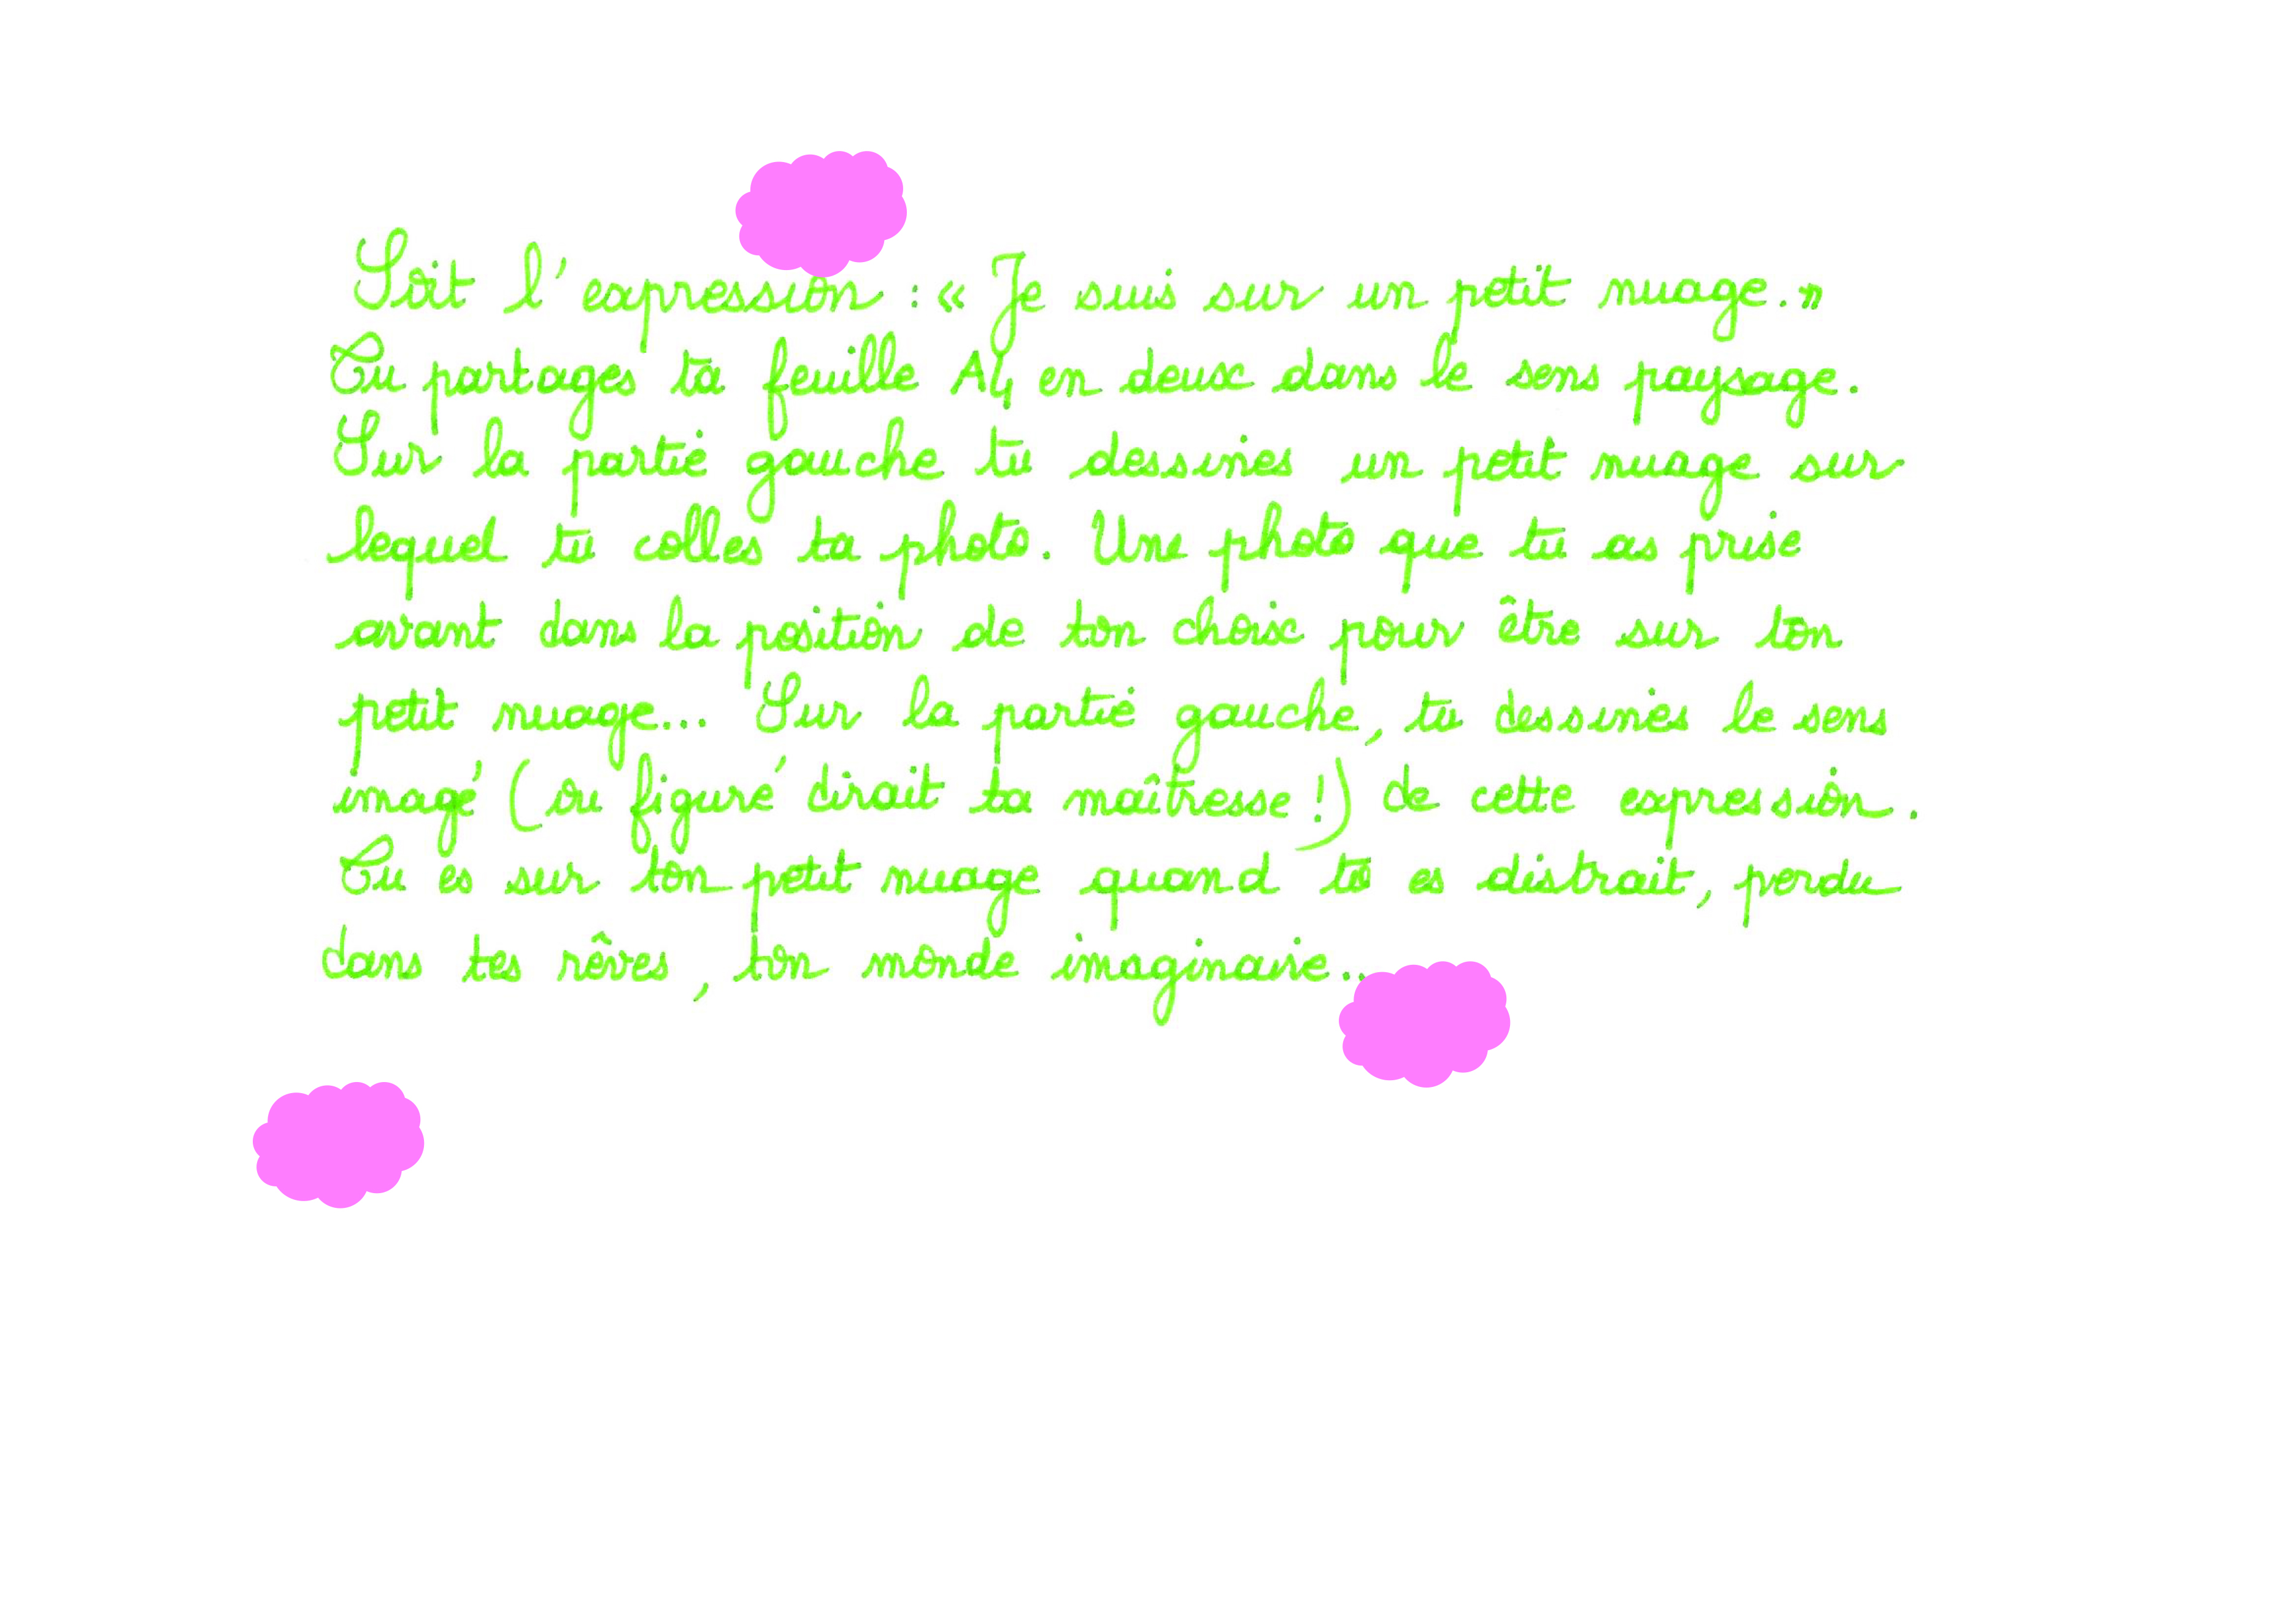 Soit l'expression : « Je suis sur un petit nuage. »
Tu partages ta feuille A4 en deux dans le sens paysage.
Sur la partie gauche tu dessines un petit nuage sur
lequel tu colles ta photo. Une photo que tu as prise
avant dans la position de ton choix pour être sur ton
petit nuage... Sur la partie gauche, tu dessines le sens
imagé (ou figuré dirait ta maîtresse !) de cette expression.
Tu es sur ton petit nuage quand tu es distrait, perdu
dans tes rêves, ton monde imaginaire..